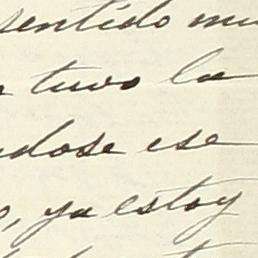 sentido mu
tuvo la
dose ese
, ya estoy